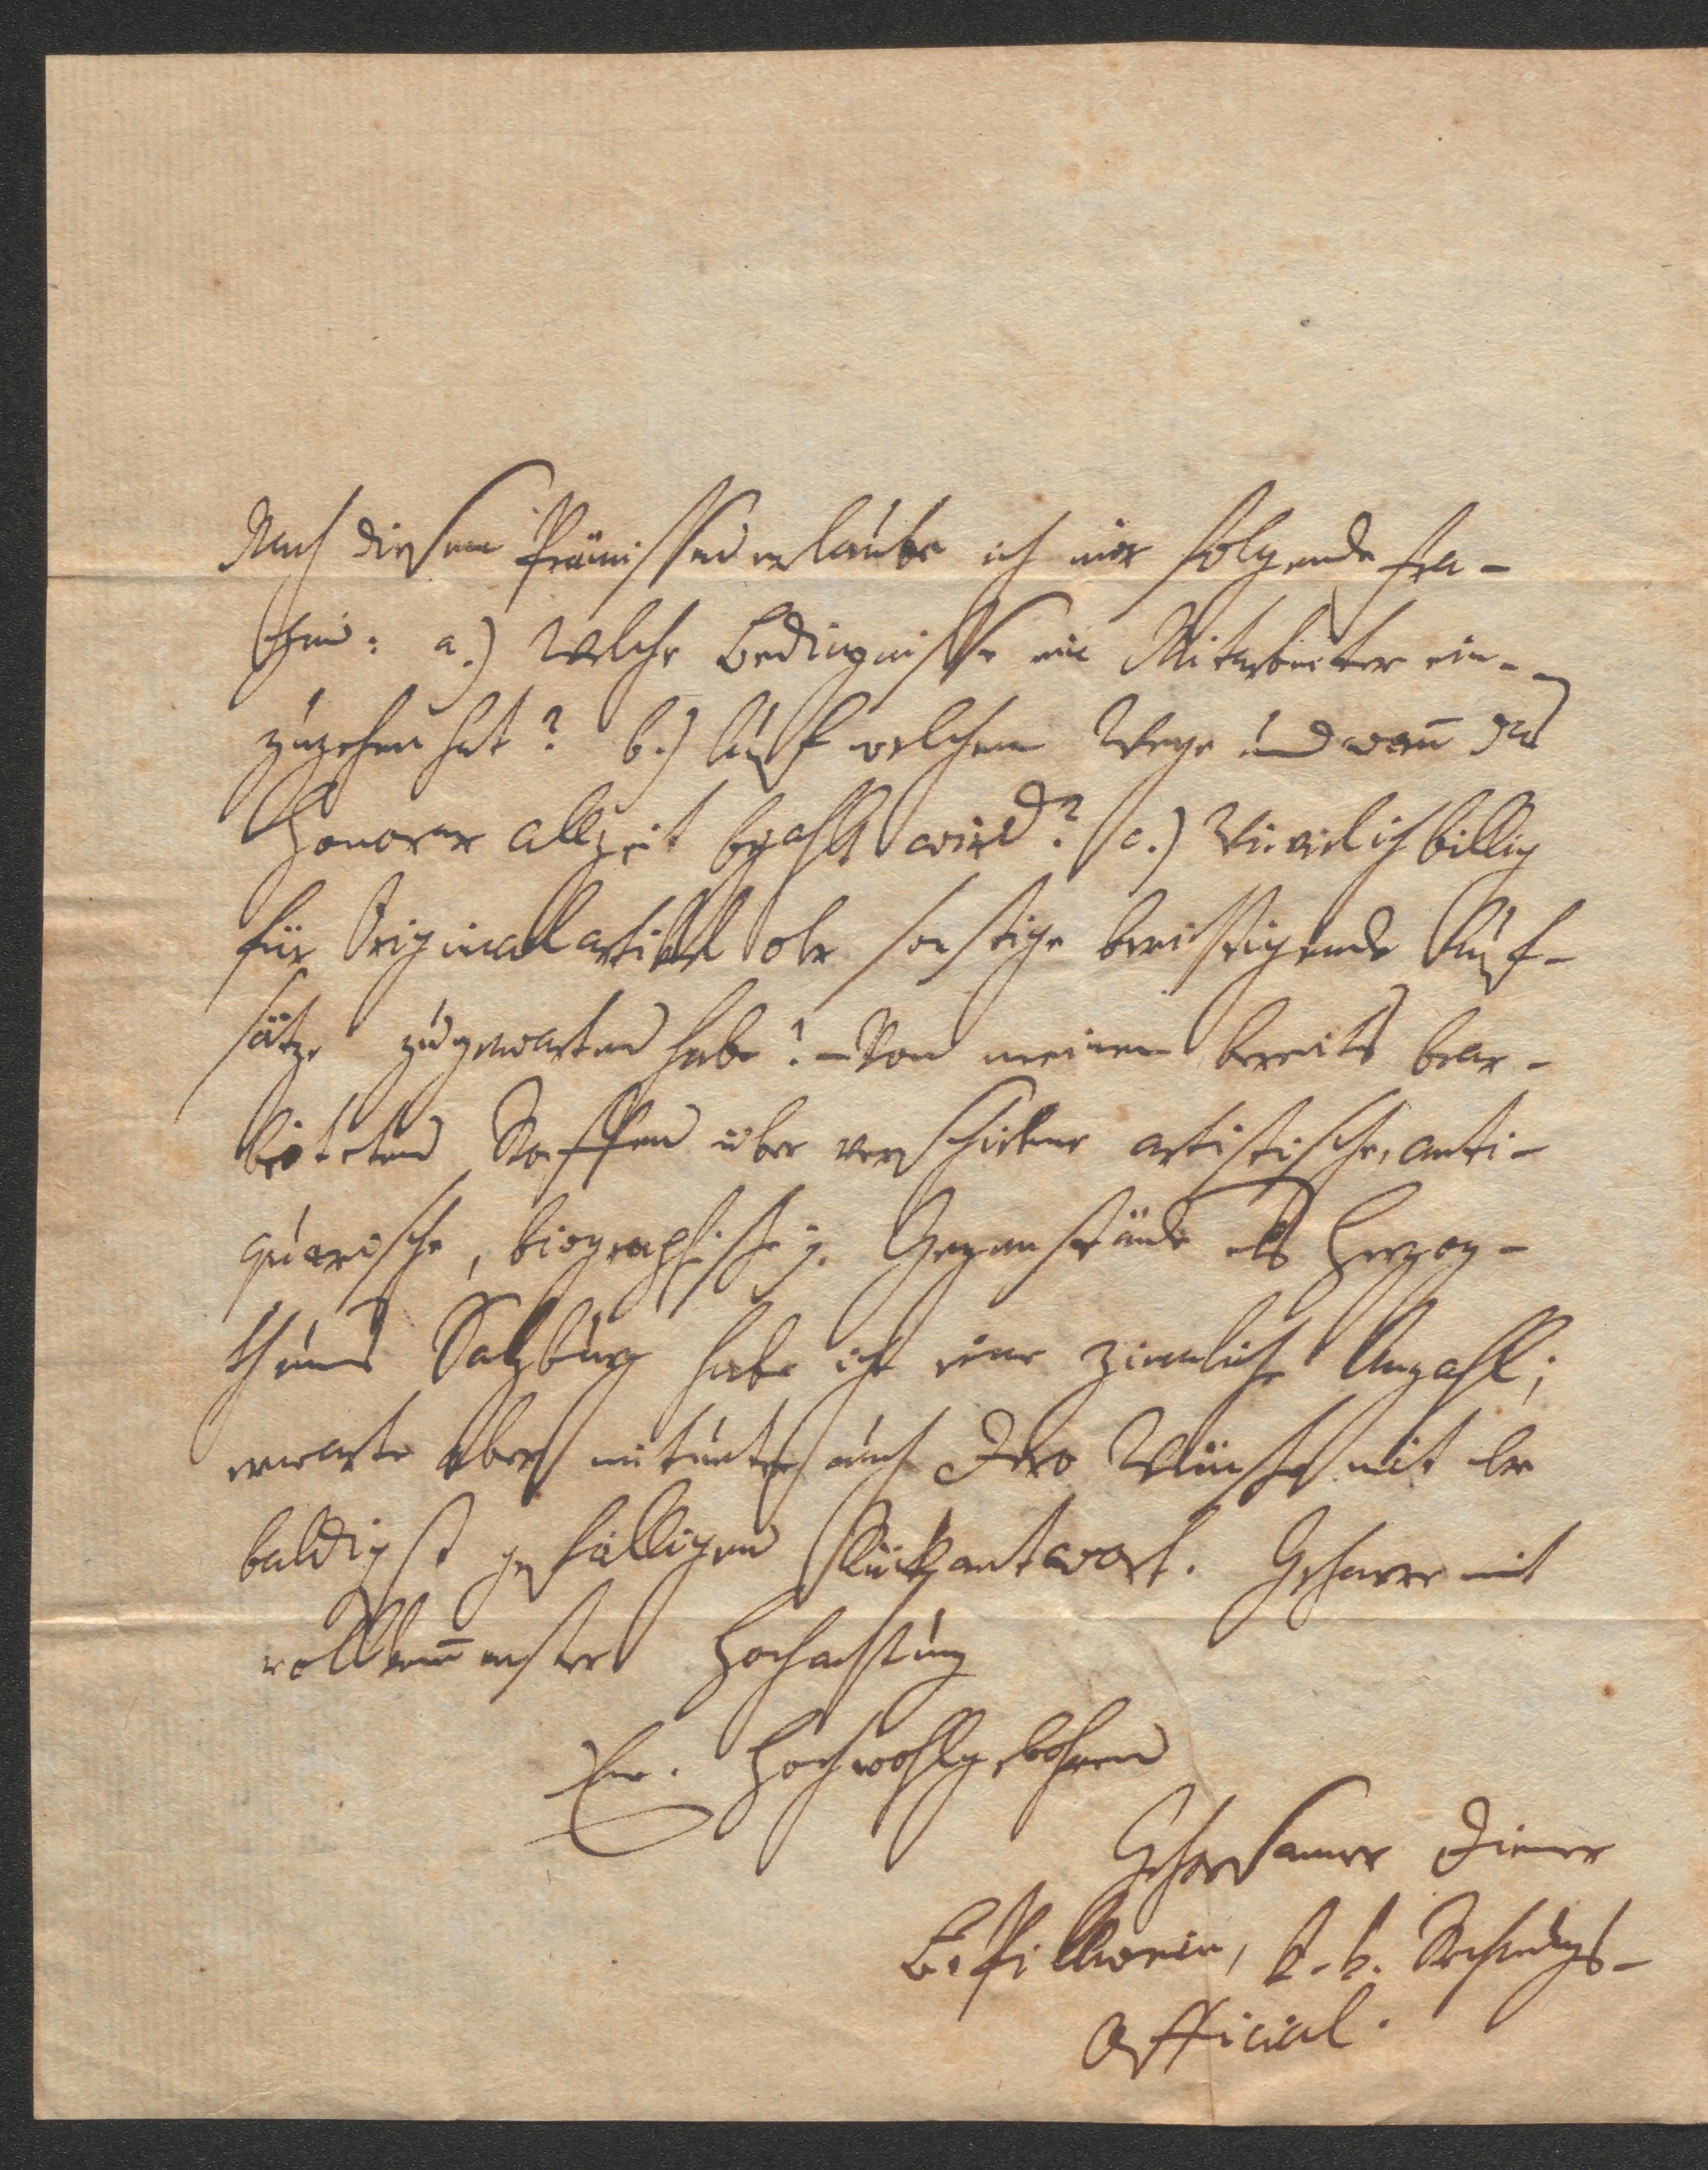 Nach diesen Prämissen erlaube ich mir folgende Fra-
gen: a.) Welche Bedingnisse ein Mitarbeiter ein-
zugehen hat? b.) Auf welchem Wege und wan̄ das
Honorar allzeit bezahlt wird? c.) Wieviel ich billig
für Originalartikel oder sonstige berichtigende Auf-
sätze zu gewarten habe? – Von meinen bereits bear-
beiteten Stoffen über verschiedene artistische, anti-
quarische, biographische p. Gegenstände des Herzog-
thums Salzburg habe ich eine ziemliche Anzahl;
erwarte aber mitunter auch Dero Wünsche mit der
baldigst gefälligen Rückantwort. Geharre mit
vollkom̄enster Hochachtung
Ew. Hochwohlgebohren
Gehorsamer Diener
B. Pillwein, k. k. Rechnungs-
Official.